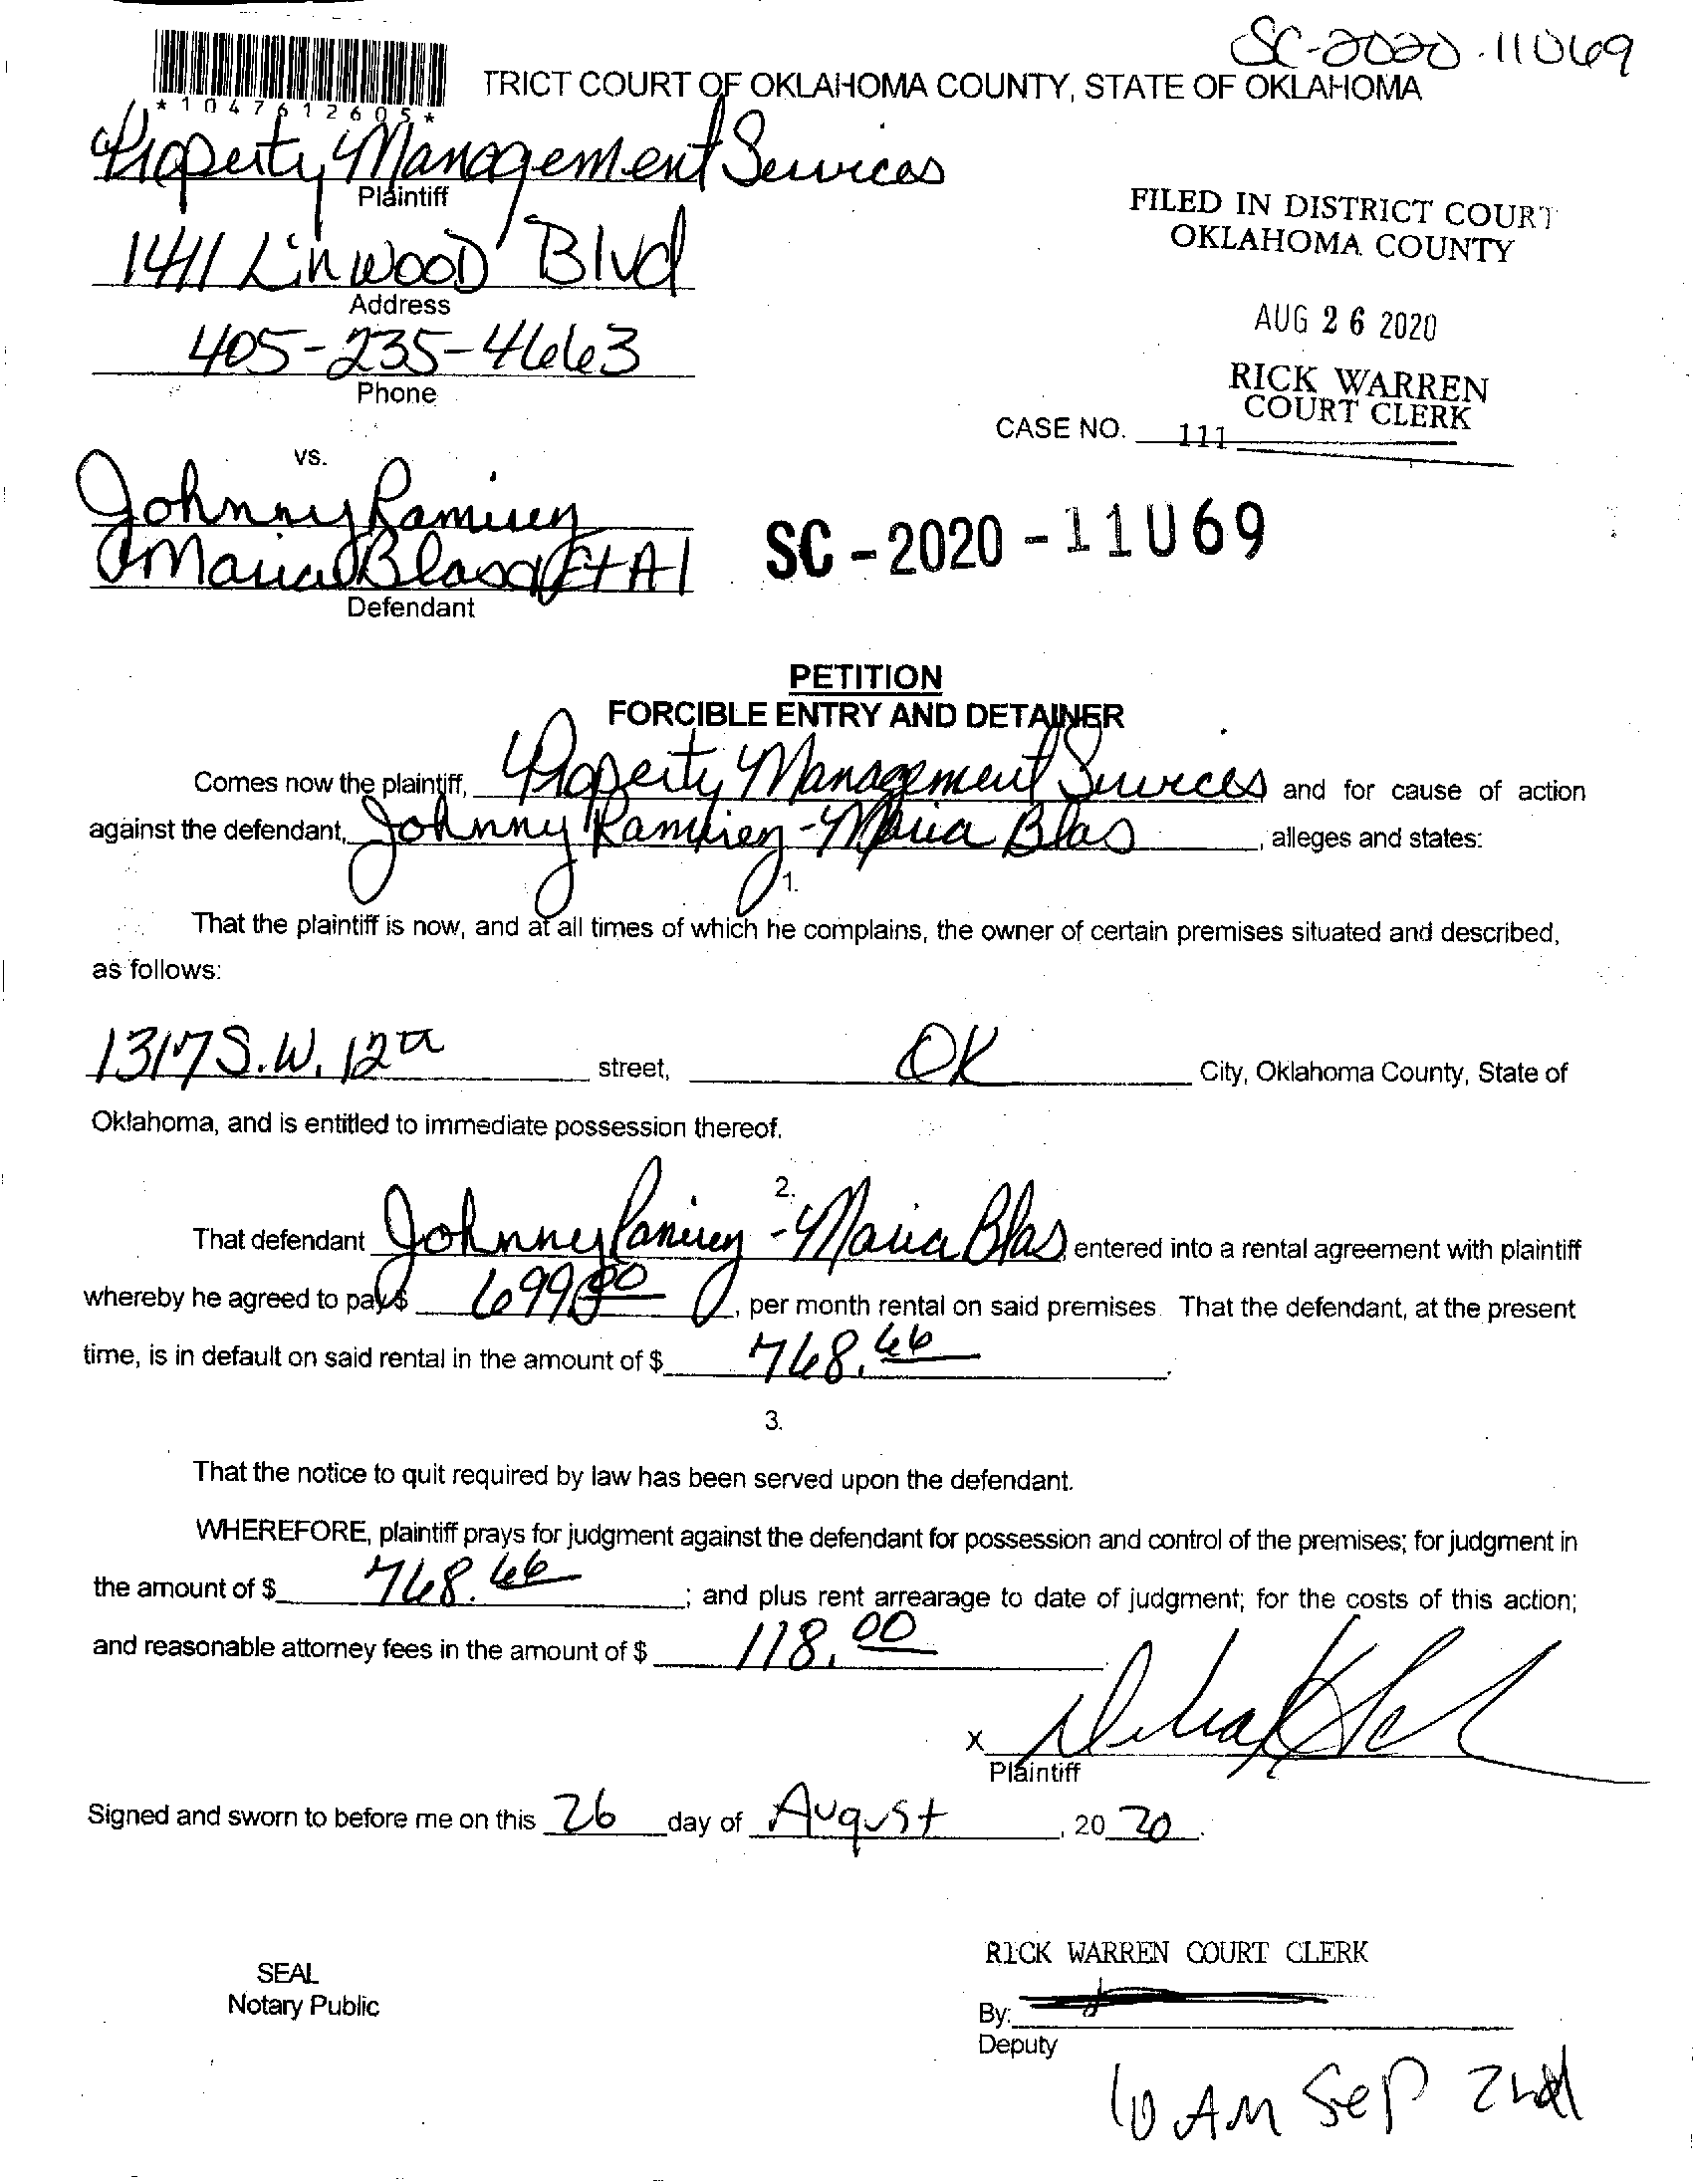 SC-2020-11069
*1047612605*
TRICT COURT OF OKLAHOMA COUNTY, STATE OF OKLAHOMA
Property Management Services
Plaintiff
1411 Linwood Blvd
Address
405-235-4663
Phone
FILED IN DISTRICT COURT
OKLAHOMA COUNTY
AUG 26 2020
RICK WARREN
COURT CLERK
CASE NO. 111
vs.
Johnny Ramirez
Maria Blas Et Al
Defendant
SC-2020-11069
PETITION
FORCIBLE ENTRY AND DETAINER
Comes now the plaintiff, Property Management Services and for cause of action
against the defendant, Johnny Ramirez - Maria Blas, alleges and states:
1.
That the plaintiff is now, and at all times of which he complains, the owner of certain premises situated and described,
as follows:
1317 S.W. 12th street, OK City, Oklahoma County, State of
Oklahoma, and is entitled to immediate possession thereof.
2.
That defendant Johnny Ramirez - Maria Blas entered into a rental agreement with plaintiff
whereby he agreed to pay $ 699.00, per month rental on said premises. That the defendant, at the present
time, is in default on said rental in the amount of $ 768.66.
3.
That the notice to quit required by law has been served upon the defendant.
WHEREFORE, plaintiff prays for judgment against the defendant for possession and control of the premises; for judgment in
the amount of $ 768.66; and plus rent arrearage to date of judgment; for the costs of this action;
and reasonable attorney fees in the amount of $ 118.00
X
Plaintiff
Signed and sworn to before me on this 26 day of August, 20 20.
SEAL
Notary Public
RICK WARREN COURT CLERK
By:
Deputy
10 AM Sep 2nd